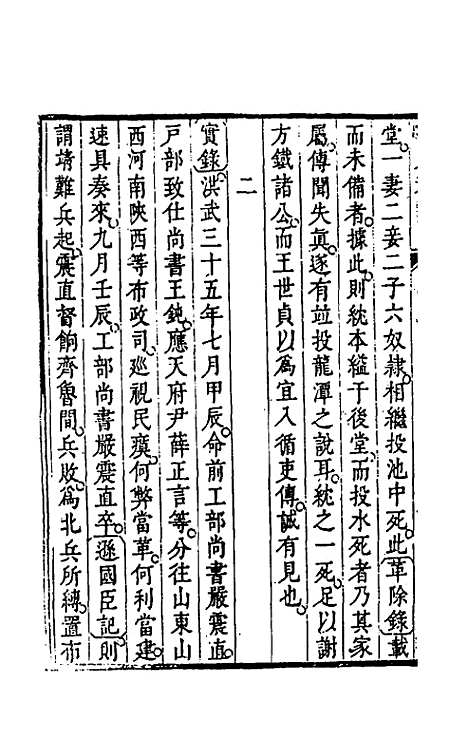 堂一妻二妾二子六奴隷相繼投池中死此革除錄載
而未備者據此則統本縊于後堂而投水死者乃其家
屬傳聞失眞遂有竝投龍潭之說耳統之一死足以謝
方鐵諸公而王世貞以爲宜入循吏傳誠有見也
二
實錄洪武三十五年七月甲辰命前工部尚書嚴震直
戸部致仕尚書王鈍應天府尹薛正言等分往山東山
西河南陝西等布政司廵視民瘼何弊當革何利當建
速具奏來九月壬辰工部尚書嚴震直卒遜國臣記則
謂靖難兵起震直督餉齊魯間兵敗爲北兵所縛置布